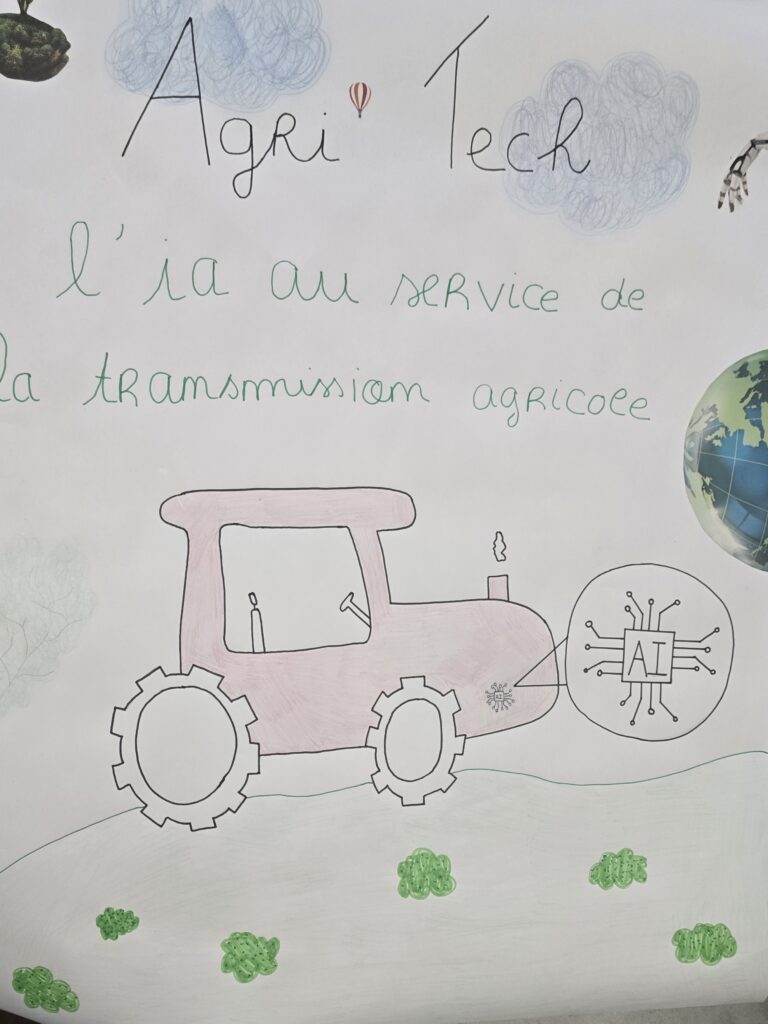 Agri Tech
l'ia au service de
la transmission agricole
AI
AI